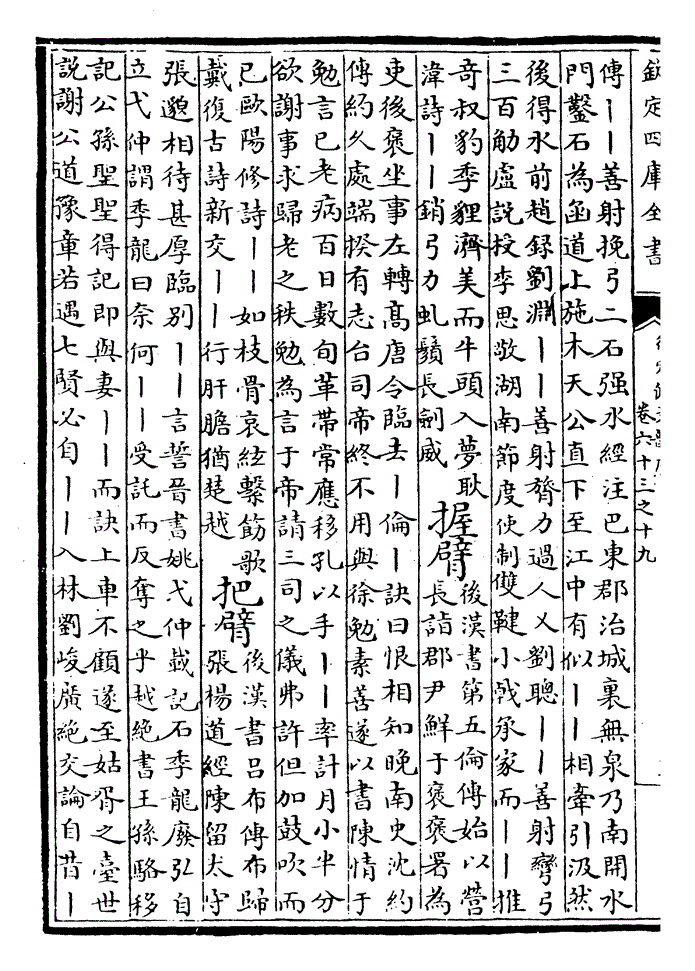 欽定四庫全書
卷六十三之十九
傳丨丨善射挽弓二石强水經注巴東郡治城裏無泉乃南開水
門鑿石為函道上施木天公直下至江中有似丨丨相牽引汲然
後得水前趙録劉淵丨丨善射膂力過人乂劉聰丨丨善射彎弓
三百觔盧說授李思敬湖南節度使制雙鞬小戟承家而丨丨推
奇叔豹季貍濟美而牛頭入夢耿
湋詩丨丨銷弓力虬鬚長劍威
握臂
後漢書第五倫傳始以營
長詣郡尹鮮于褒褒署為
吏後褒坐事左轉高唐令臨去丨倫丨訣曰恨相知晚南史沈約
傳約久處端揆有志台司帝終不用與徐勉素善遂以書陳情于
勉言已老病百日數旬革帶常應移孔以手丨丨率計月小半分
欲謝事求歸老之秩勉為言于帝請三司之儀弗許但加鼓吹而
已歐陽修詩丨丨如枝骨哀絃繫筋歌
戴復古詩新交丨丨行肝膽猶楚越
把臂
後漢書吕布傳布歸
張楊道經陳留太守
張邈相待甚厚臨別丨丨言誓晉書姚弋仲載記石季龍廢弘自
立弋仲謂季龍曰奈何丨丨受託而反奪之乎越絶書王孫駱移
記公孫聖聖得記即與妻丨丨而訣上車不顧遂至姑胥之臺世
說謝公道豫章若遇七賢必自丨丨入林劉峻廣絶交論自昔丨